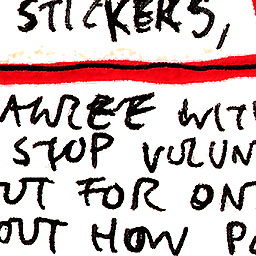 STICKERS,
AWREE WIT
STOP VULUN
OUT FOR ON
OUT HOW PA